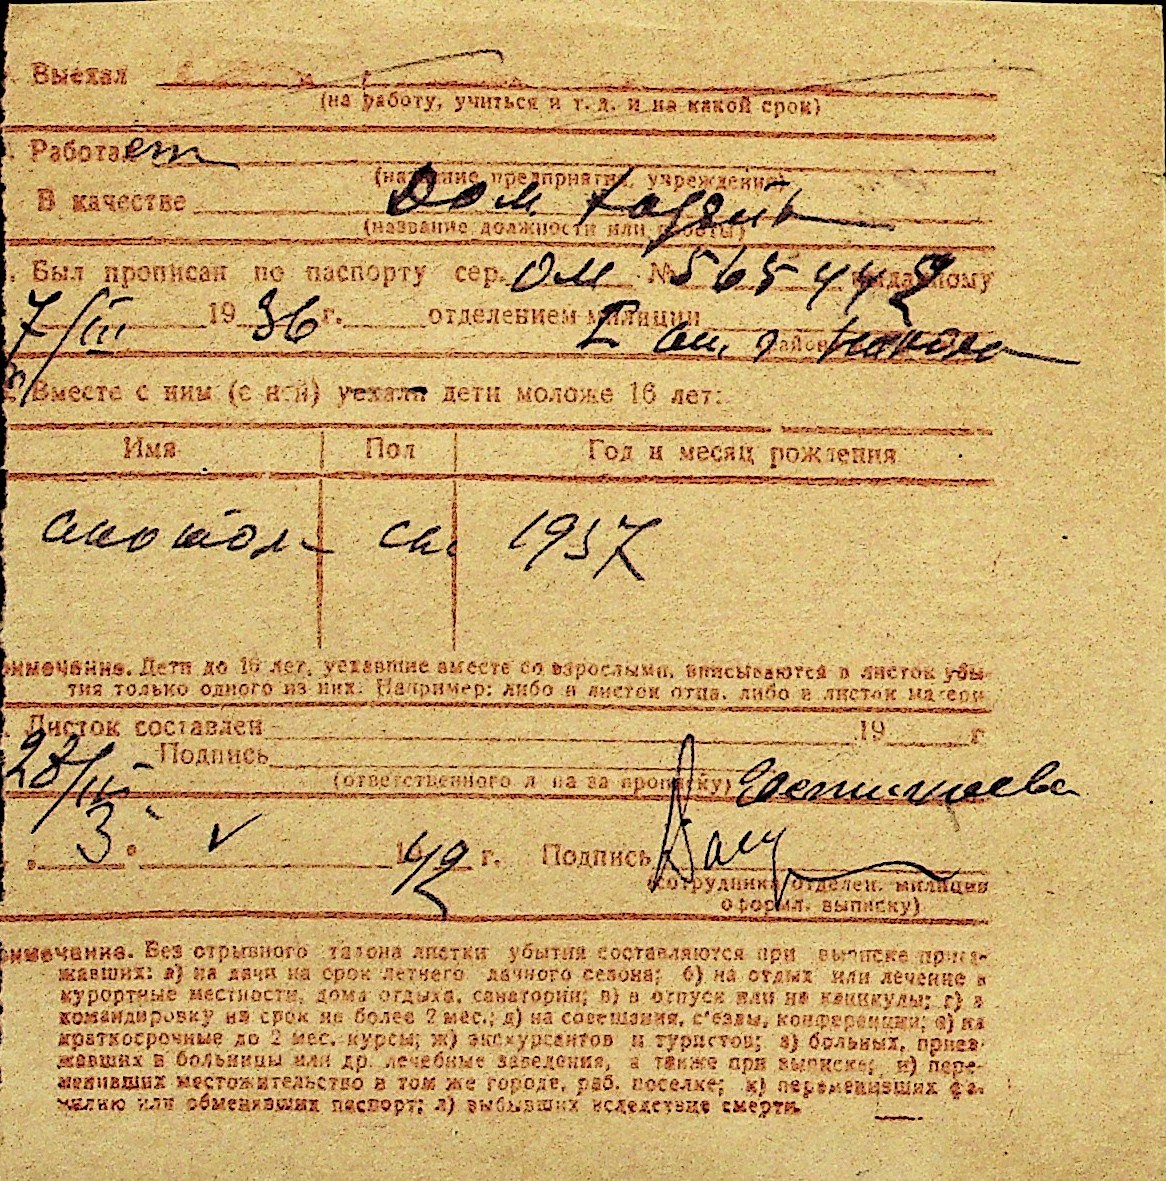 Выехал
(на работу, учиться и т. д. и на какой срок)
Работает
(название предприятия, учреждения)
В качестве Дом хозяйк
(название должности или работы)
Был прописан по паспорту сер. ОМ № 565448 выданному
7/III 1936 г. отделением милиции I
район
Вместе с ним (с ней) уехали дети моложе 16 лет:
Имя Пол Год и месяц рождения
анатол 1937
римечание. Дети до 16 лет, уехавшие вместе со взрослыми, вписываются в листок убы-
тия только одного из них. Например: либо в листок отца, либо в листок матери
Листок составлен 19 г
28/III Подпись
(ответственного л ца за прописку)
3 V 1942 г. Подпись
(сотрудника отделен. милиции
оформл. выписку)
римечание. Без отрывного талона листки убытия составляются при выписке приез-
жавших: а) на дачи на срок летнего дачного сезона; б) на отдых или лечение в
курортные местности, дома отдыха, санатории; в) в отпуск или на каникулы; г) в
командировку на срок не более 2 мес.; д) на совещания, с'езды, конференции; е) на
краткосрочные до 2 мес. курсы; ж) экскурсантов и туристов; з) больных, приез-
жавших в больницы или др. лечебные заведения, а также при выписке; и) пере-
менивших местожительство в том же городе, раб. поселке; к) переменивших фа-
милию или обменявших паспорт; л) выбывших вследствие смерти.